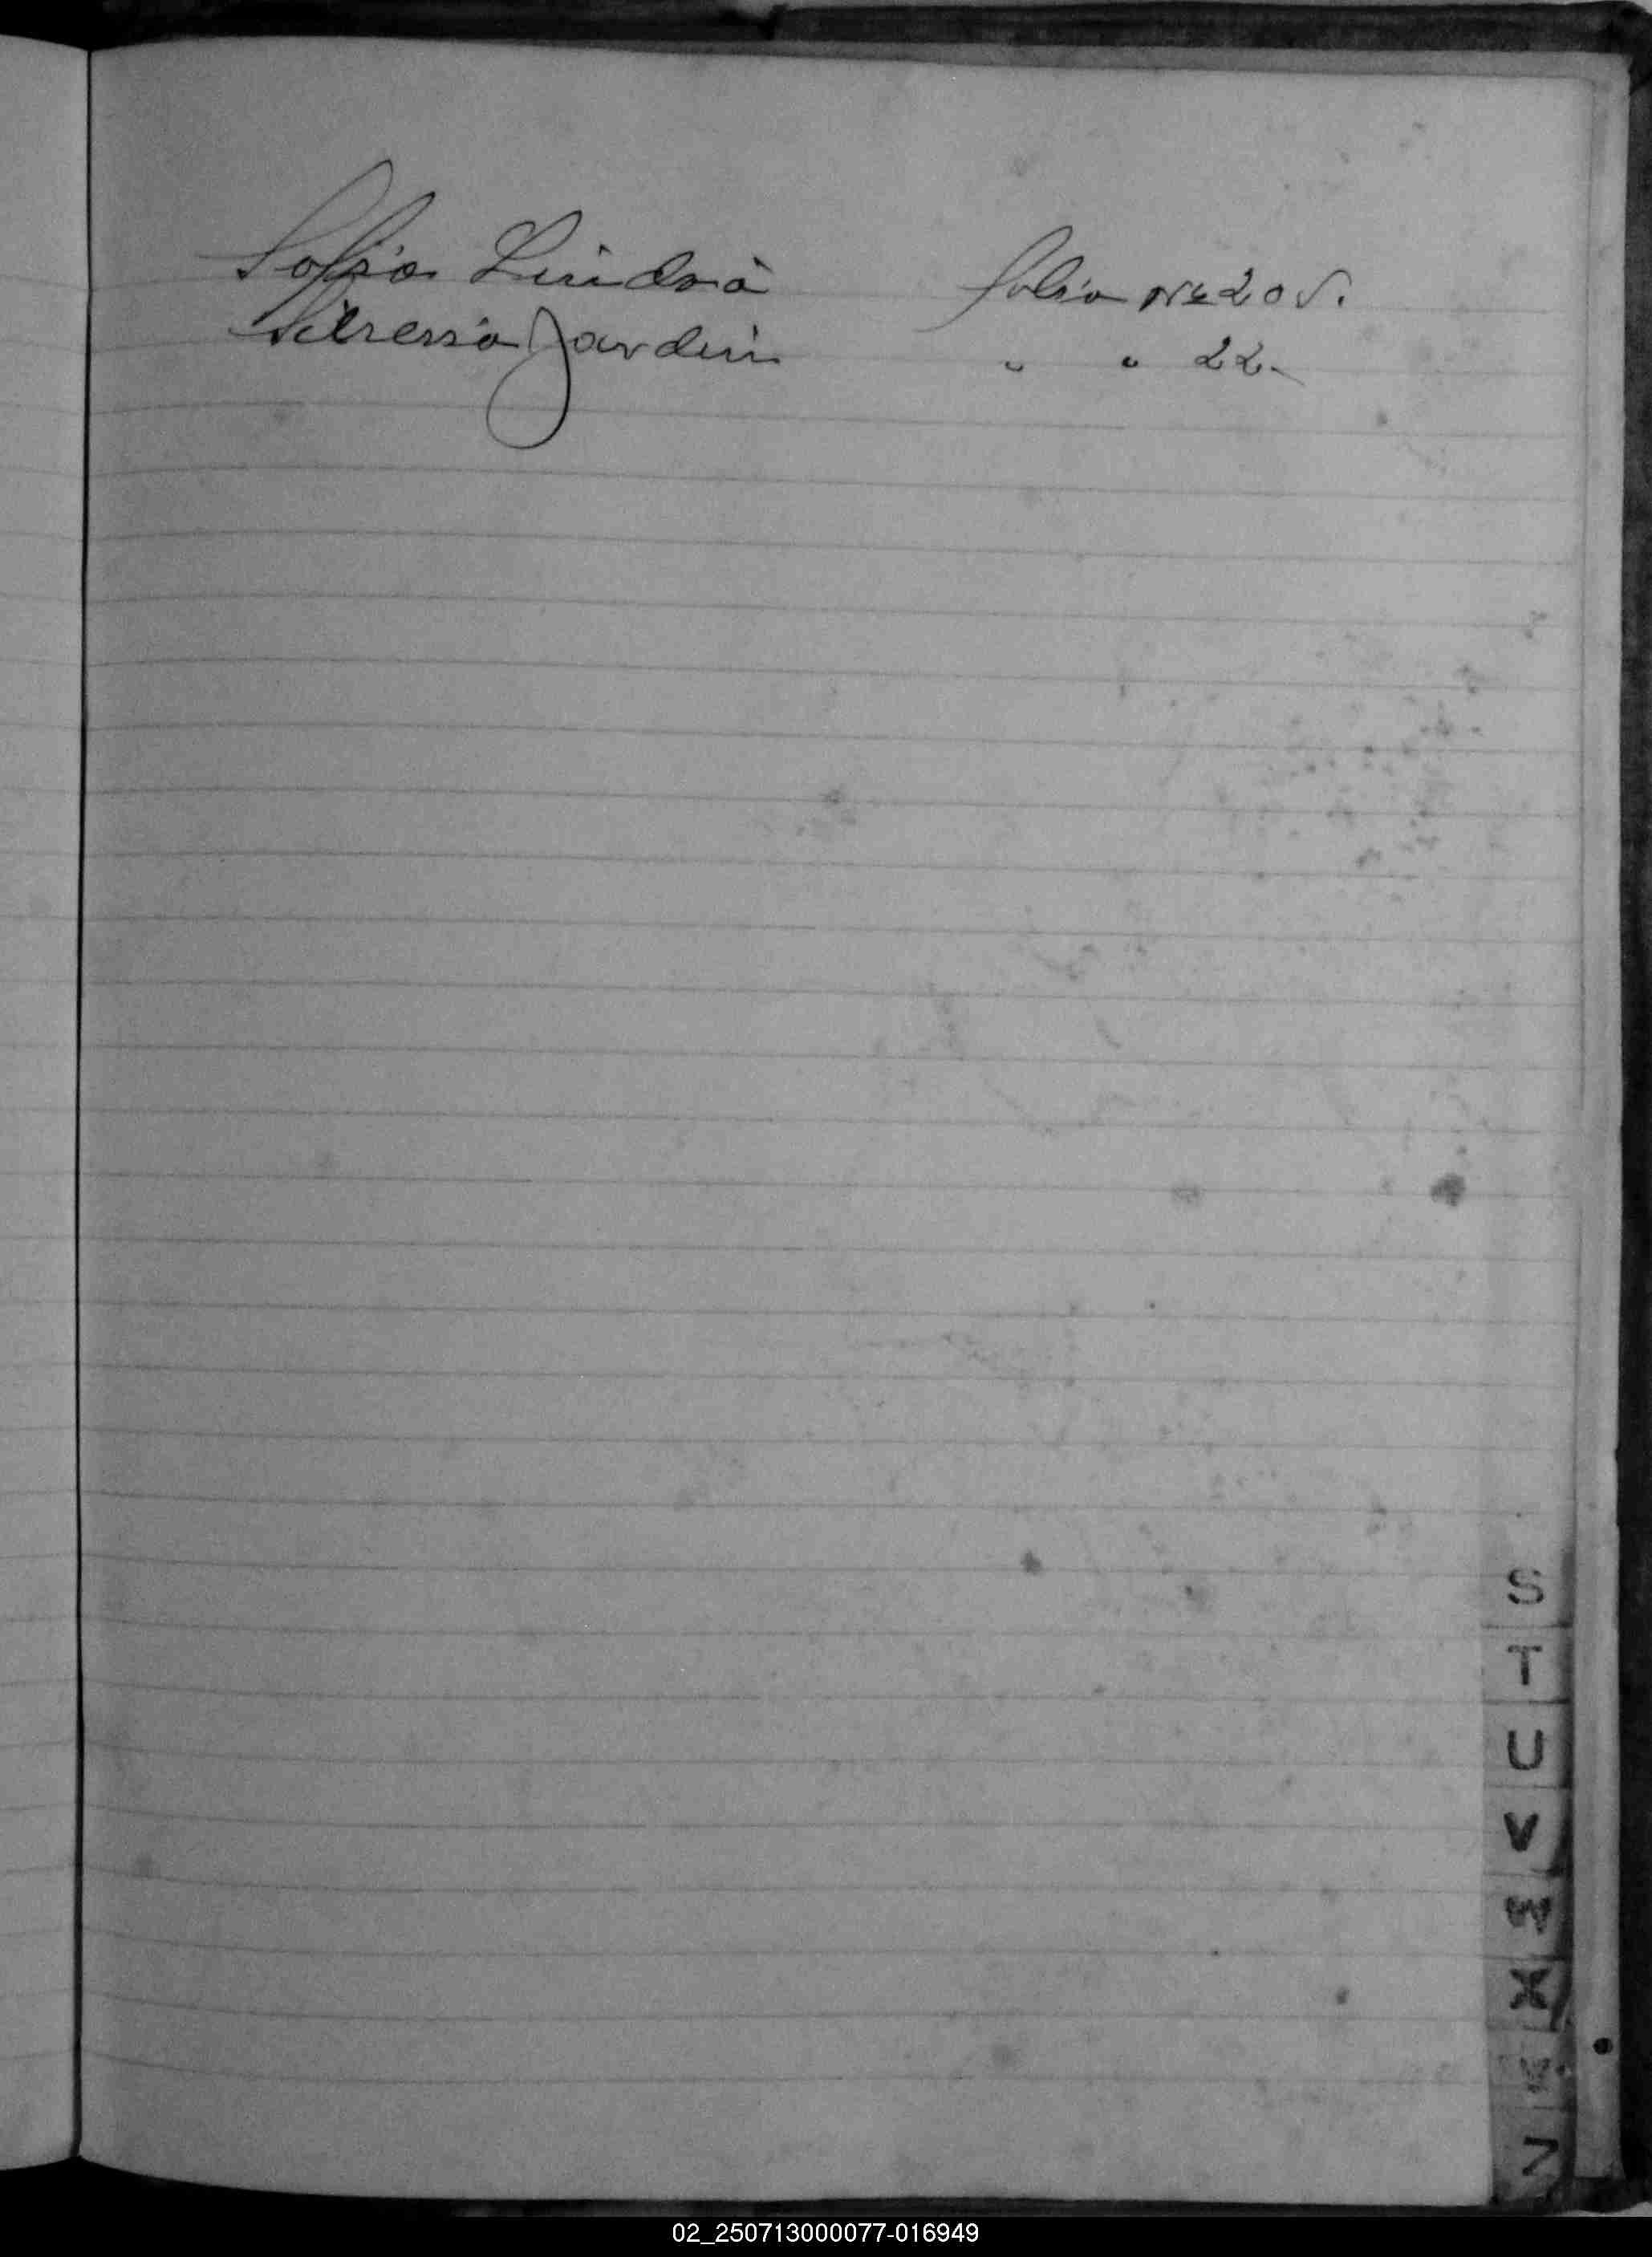 Sofia Lindra Folio Nº 20 V.
Jardin " " 22.
S
T
U
V
W
X
Y
Z
02_250713000077-016949